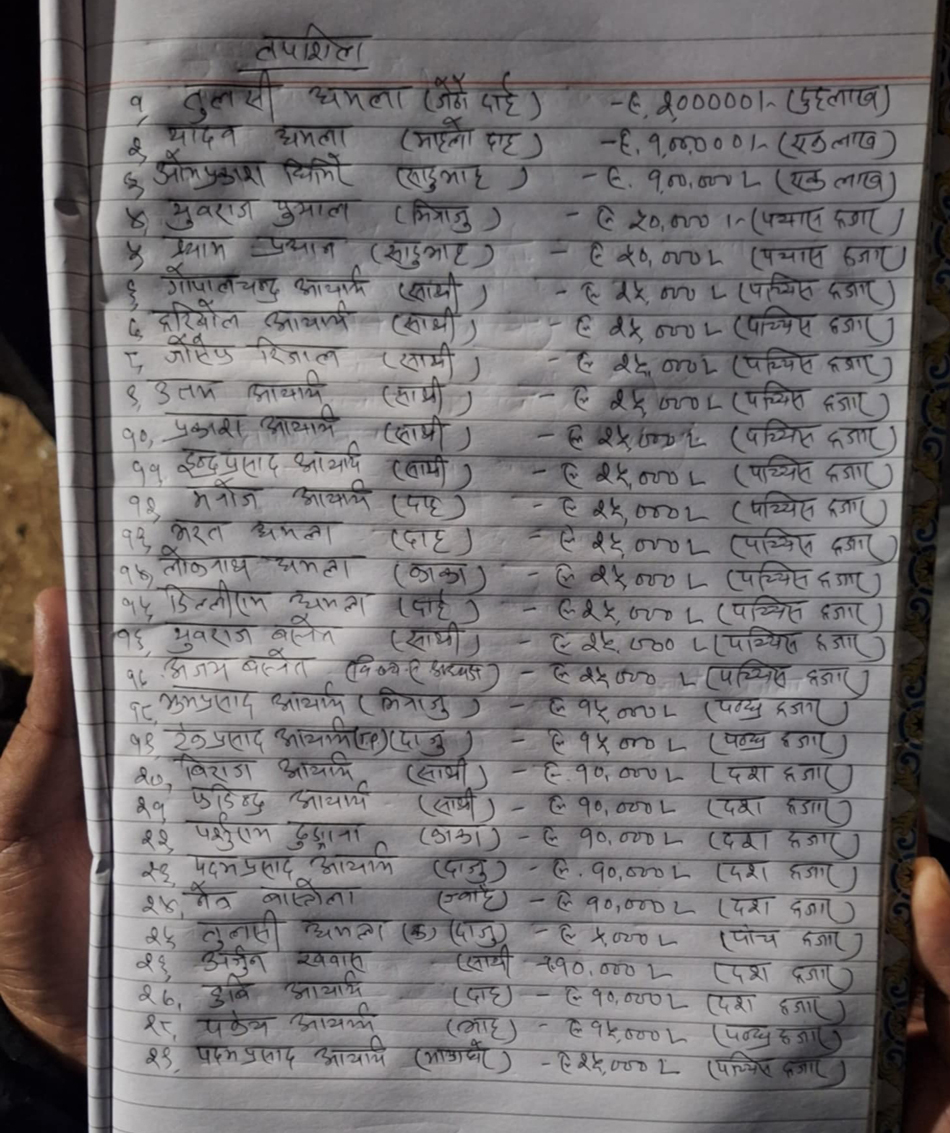 तपशिल
१ तुलसी थमला (जेठो दाई) -रु. २००००००।- (दुईलाख)
२, यादव थमला (माहिलो दाई) -रु. १,००,०००।- (एक लाख)
३, ओमप्रकाश घिमिरे (साडुभाइ) - रु. १,००,०००।- (एक लाख)
४, युवराज पुमाल (मित्रजु) - रु ५०,०००।- (पचास हजार)
५ श्याम प्रधान (साडुभाइ) - रु ५०,०००।- (पचास हजार)
६ गोपालचन्द्र आचार्य (साथी) - रु २५,०००।- (पच्चिस हजार)
७ हरिबोल आचार्य (साथी) - रु २५,०००।- (पच्चिस हजार)
८ जोसेफ रिजाल (साथी) - रु २५,०००।- (पच्चिस हजार)
९, उत्तम आचार्य (साथी) - रु २५,०००।- (पच्चिस हजार)
१०, प्रकाश आचार्य (साथी) - रु २५,०००।- (पच्चिस हजार)
११ इन्द्रप्रसाद आचार्य (साथी) - रु २५,०००।- (पच्चिस हजार)
१२ मनोज आचार्य (दाइ) - रु २५,०००।- (पच्चिस हजार)
१३, भरत थमला (दाइ) - रु २५,०००।- (पच्चिस हजार)
१४, लोकनाथ थमला (काका) - रु २५,०००।- (पच्चिस हजार)
१५, डिल्लीराम थमला (दाई) - रु २५,०००।- (पच्चिस हजार)
१६, युवराज बस्नेत (साथी) - रु २५,०००।- (पच्चिस हजार)
१७ अजय बस्नेत - रु २५,०००।- (पच्चिस हजार)
१८, आचार्य (मित्रजु) - रु १५,०००।- (पन्ध्र हजार)
१९ टेकप्रसाद आचार्य (दाजु) - रु १५,०००।- (पन्ध्र हजार)
२०, विराज आचार्य (साथी) - रु. १०,०००।- (दश हजार)
२१ फडिन्द्र आचार्य (साथी) - रु १०,०००।- (दश हजार)
२२ पर्शुराम ढुङ्गाना (काका) - रु १०,०००।- (दश हजार)
२३, पदमप्रसाद आचार्य (दाजु) - रु. १०,०००।- (दश हजार)
२४, नेत्र बास्तोला (ज्वाई) - रु १०,०००।- (दश हजार)
२५ तुलसी थमला (क) (दाजु) - रु ५,०००।- (पाँच हजार)
२६, अर्जुन खवास (साथी - रु१०,०००।- (दश हजार)
२७, डुवि आचार्य (दाइ) - रु १०,०००।- (दश हजार)
२८, आचार्य (भाइ) - रु १५,०००।- (पन्ध्र हजार)
२९, पदमप्रसाद आचार्य - रु २५,०००।- (पच्चिस हजार)